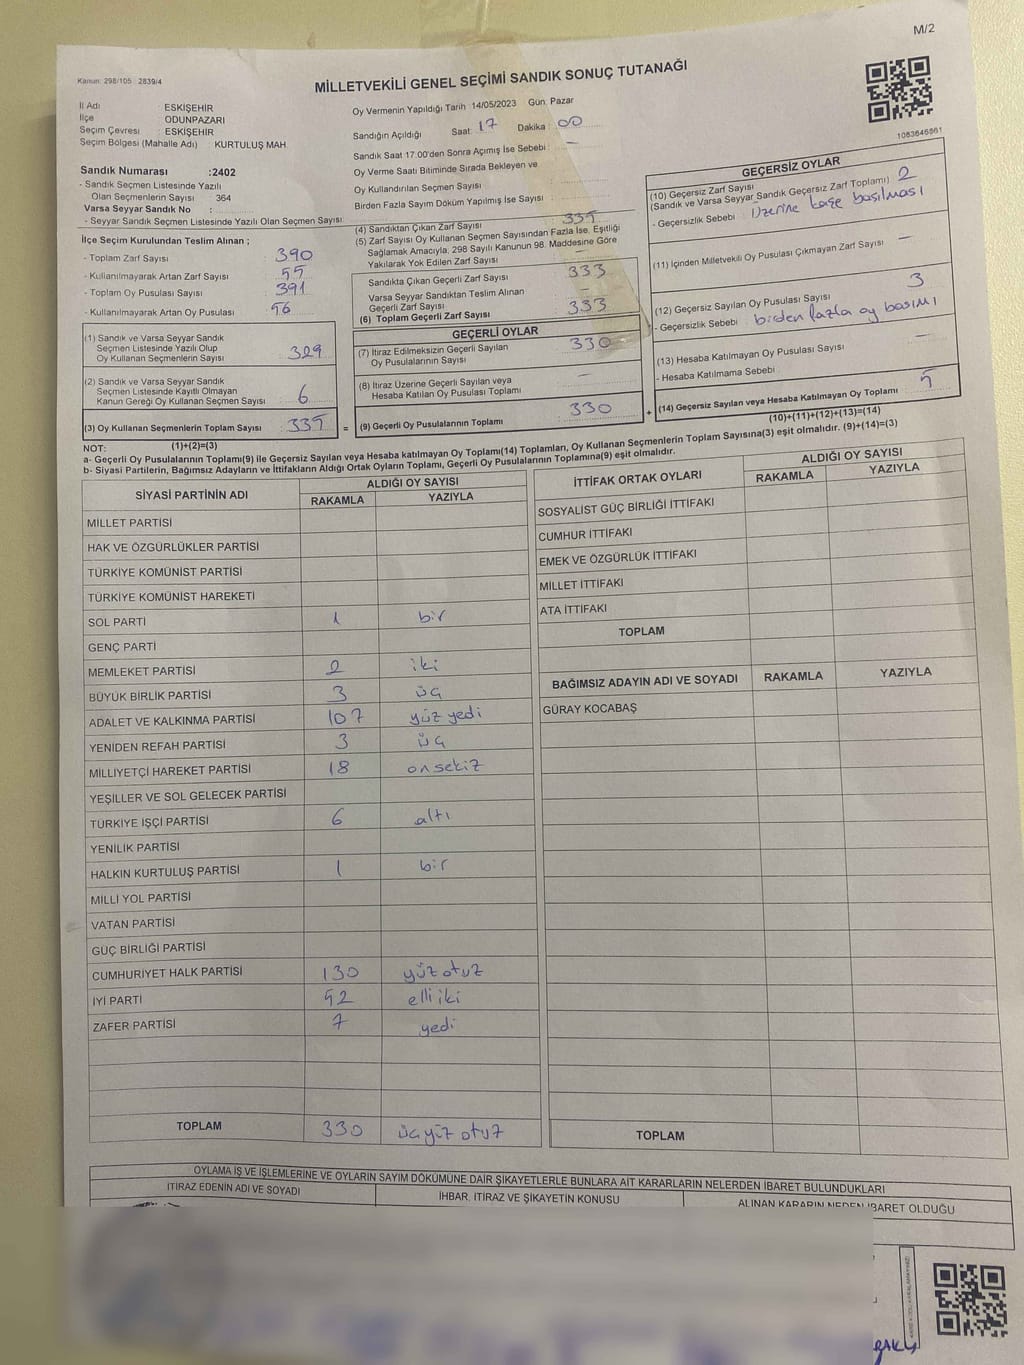 M/2
Kanun: 298/105 2839/4
MİLLETVEKİLİ GENEL SEÇİMİ SANDIK SONUÇ TUTANAĞI
İl Adı ESKİŞEHİR
İlçe ODUNPAZARI
Seçim Çevresi : ESKİŞEHİR
Seçim Bölgesi (Mahalle Adı) KURTULUŞ MAH.
Oy Vermenin Yapıldığı Tarih 14/05/2023 Gün: Pazar
Sandığın Açıldığı Saat: 17 Dakika : 00
Sandık Saat 17:00'den Sonra Açımış İse Sebebi : –
Oy Verme Saati Bitiminde Sırada Bekleyen ve
Oy Kullandırılan Seçmen Sayısı
Birden Fazla Sayım Döküm Yapılmış İse Sayısı :
1083646961
Sandık Numarası :2402
- Sandık Seçmen Listesinde Yazılı
Olan Seçmenlerin Sayısı : 364
Varsa Seyyar Sandık No :
- Seyyar Sandık Seçmen Listesinde Yazılı Olan Seçmen Sayısı
İlçe Seçim Kurulundan Teslim Alınan ;
- Toplam Zarf Sayısı : 390
- Kullanılmayarak Artan Zarf Sayısı : 55
- Toplam Oy Pusulası Sayısı : 391
- Kullanılmayarak Artan Oy Pusulası : 56
(1) Sandık ve Varsa Seyyar Sandık
Seçmen Listesinde Yazılı Olup
Oy Kullanan Seçmenlerin Sayısı : 329
(2) Sandık ve Varsa Seyyar Sandık
Seçmen Listesinde Kayıtlı Olmayan
Kanun Gereği Oy Kullanan Seçmen Sayısı : 6
(3) Oy Kullanan Seçmenlerin Toplam Sayısı : 335
(1)+(2)=(3)
(4) Sandıktan Çıkan Zarf Sayısı : 335
(5) Zarf Sayısı Oy Kullanan Seçmen Sayısından Fazla İse, Eşitliği
Sağlamak Amacıyla, 298 Sayılı Kanunun 98. Maddesine Göre
Yakılarak Yok Edilen Zarf Sayısı : –
Sandıkta Çıkan Geçerli Zarf Sayısı : 333
Varsa Seyyar Sandıktan Teslim Alınan
Geçerli Zarf Sayısı : –
(6) Toplam Geçerli Zarf Sayısı : 333
GEÇERLİ OYLAR
(7) İtiraz Edilmeksizin Geçerli Sayılan
Oy Pusulalarının Sayısı : 330
(8) İtiraz Üzerine Geçerli Sayılan veya
Hesaba Katılan Oy Pusulası Toplamı : –
= (9) Geçerli Oy Pusulalarının Toplamı : 330
GEÇERSİZ OYLAR
(10) Geçersiz Zarf Sayısı
(Sandık ve Varsa Seyyar Sandık Geçersiz Zarf Toplamı) 2
- Geçersizlik Sebebi : Üzerine kaşe basılması
(11) İçinden Milletvekili Oy Pusulası Çıkmayan Zarf Sayısı –
(12) Geçersiz Sayılan Oy Pusulası Sayısı 3
- Geçersizlik Sebebi : birden fazla oy basımı
(13) Hesaba Katılmayan Oy Pusulası Sayısı –
- Hesaba Katılmama Sebebi :
+ (14) Geçersiz Sayılan veya Hesaba Katılmayan Oy Toplamı 5
(10)+(11)+(12)+(13)=(14)
NOT:
a- Geçerli Oy Pusulaları Toplamı(9) ile Geçersiz Sayılan veya Hesaba katılmayan Oy Toplamı(14) Toplamları, Oy Kullanan Seçmenlerin Toplam Sayısına(3) eşit olmalıdır. (9)+(14)=(3)
b- Siyasi Partilerin, Bağımsız Adayların ve İttifakların Aldığı Ortak Oyların Toplamı, Geçerli Oy Pusulalarının Toplamına(9) eşit olmalıdır.
SİYASİ PARTİNİN ADI ALDIĞI OY SAYISI
RAKAMLA YAZIYLA
MİLLET PARTİSİ
HAK VE ÖZGÜRLÜKLER PARTİSİ
TÜRKİYE KOMÜNİST PARTİSİ
TÜRKİYE KOMÜNİST HAREKETİ
SOL PARTİ 1 bir
GENÇ PARTİ
MEMLEKET PARTİSİ 2 iki
BÜYÜK BİRLİK PARTİSİ 3 üç
ADALET VE KALKINMA PARTİSİ 107 yüz yedi
YENİDEN REFAH PARTİSİ 3 üç
MİLLİYETÇİ HAREKET PARTİSİ 18 onsekiz
YEŞİLLER VE SOL GELECEK PARTİSİ
TÜRKİYE İŞÇİ PARTİSİ 6 altı
YENİLİK PARTİSİ
HALKIN KURTULUŞ PARTİSİ 1 bir
MİLLİ YOL PARTİSİ
VATAN PARTİSİ
GÜÇ BİRLİĞİ PARTİSİ
CUMHURİYET HALK PARTİSİ 130 yüz otuz
İYİ PARTİ 52 elli iki
ZAFER PARTİSİ 7 yedi
TOPLAM 330 üçyüz otuz
İTTİFAK ORTAK OYLARI ALDIĞI OY SAYISI
RAKAMLA YAZIYLA
SOSYALİST GÜÇ BİRLİĞİ İTTİFAKI
CUMHUR İTTİFAKI
EMEK VE ÖZGÜRLÜK İTTİFAKI
MİLLET İTTİFAKI
ATA İTTİFAKI
TOPLAM
BAĞIMSIZ ADAYIN ADI VE SOYADI RAKAMLA YAZIYLA
GÜRAY KOCABAŞ
TOPLAM
OYLAMA İŞ VE İŞLEMLERİNE VE OYLARIN SAYIM DÖKÜMÜNE DAİR ŞİKAYETLERLE BUNLARA AİT KARARLARIN NELERDEN İBARET BULUNDUKLARI
İTİRAZ EDENİN ADI VE SOYADI İHBAR, İTİRAZ VE ŞİKAYETİN KONUSU ALINAN KARARIN NEDEN İBARET OLDUĞU